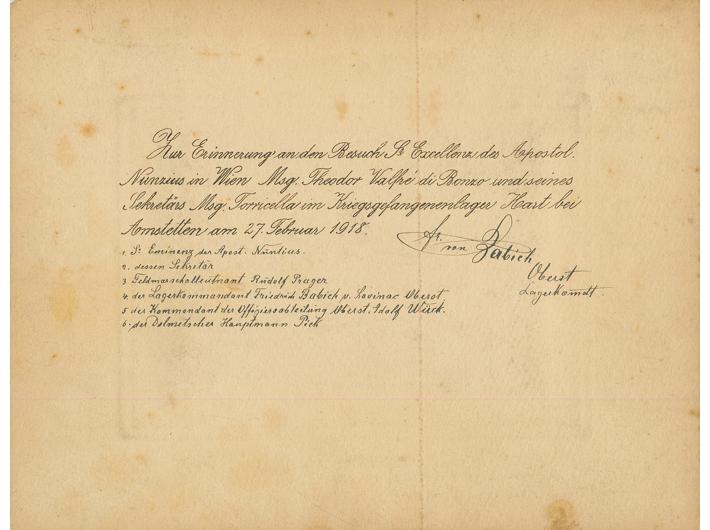 Zur Erinnerung an den Besuch Sr Excellenz des Apostol.
Nunzius in Wien Msg. Theodor Valfré di Bonzo und seines
Sekretärs Msg. Torricella im Kriegsgefangenenlager Hart bei
Amstetten am 27. Februar 1918.
Fr. von Babich
Oberst
Lagerkomdt.
1. Sr Eminenz der Apost. Nuntius.
2. dessen Sekretär
3 Feldmarschalleutnant Rudolf Prager
4 der Lagerkommandant Friedrich Babich v. Lovinac Oberst
5 der Kommandant der Offiziersabteilung Oberst. Adolf
6. der Dolmetscher Hauptmann Pick